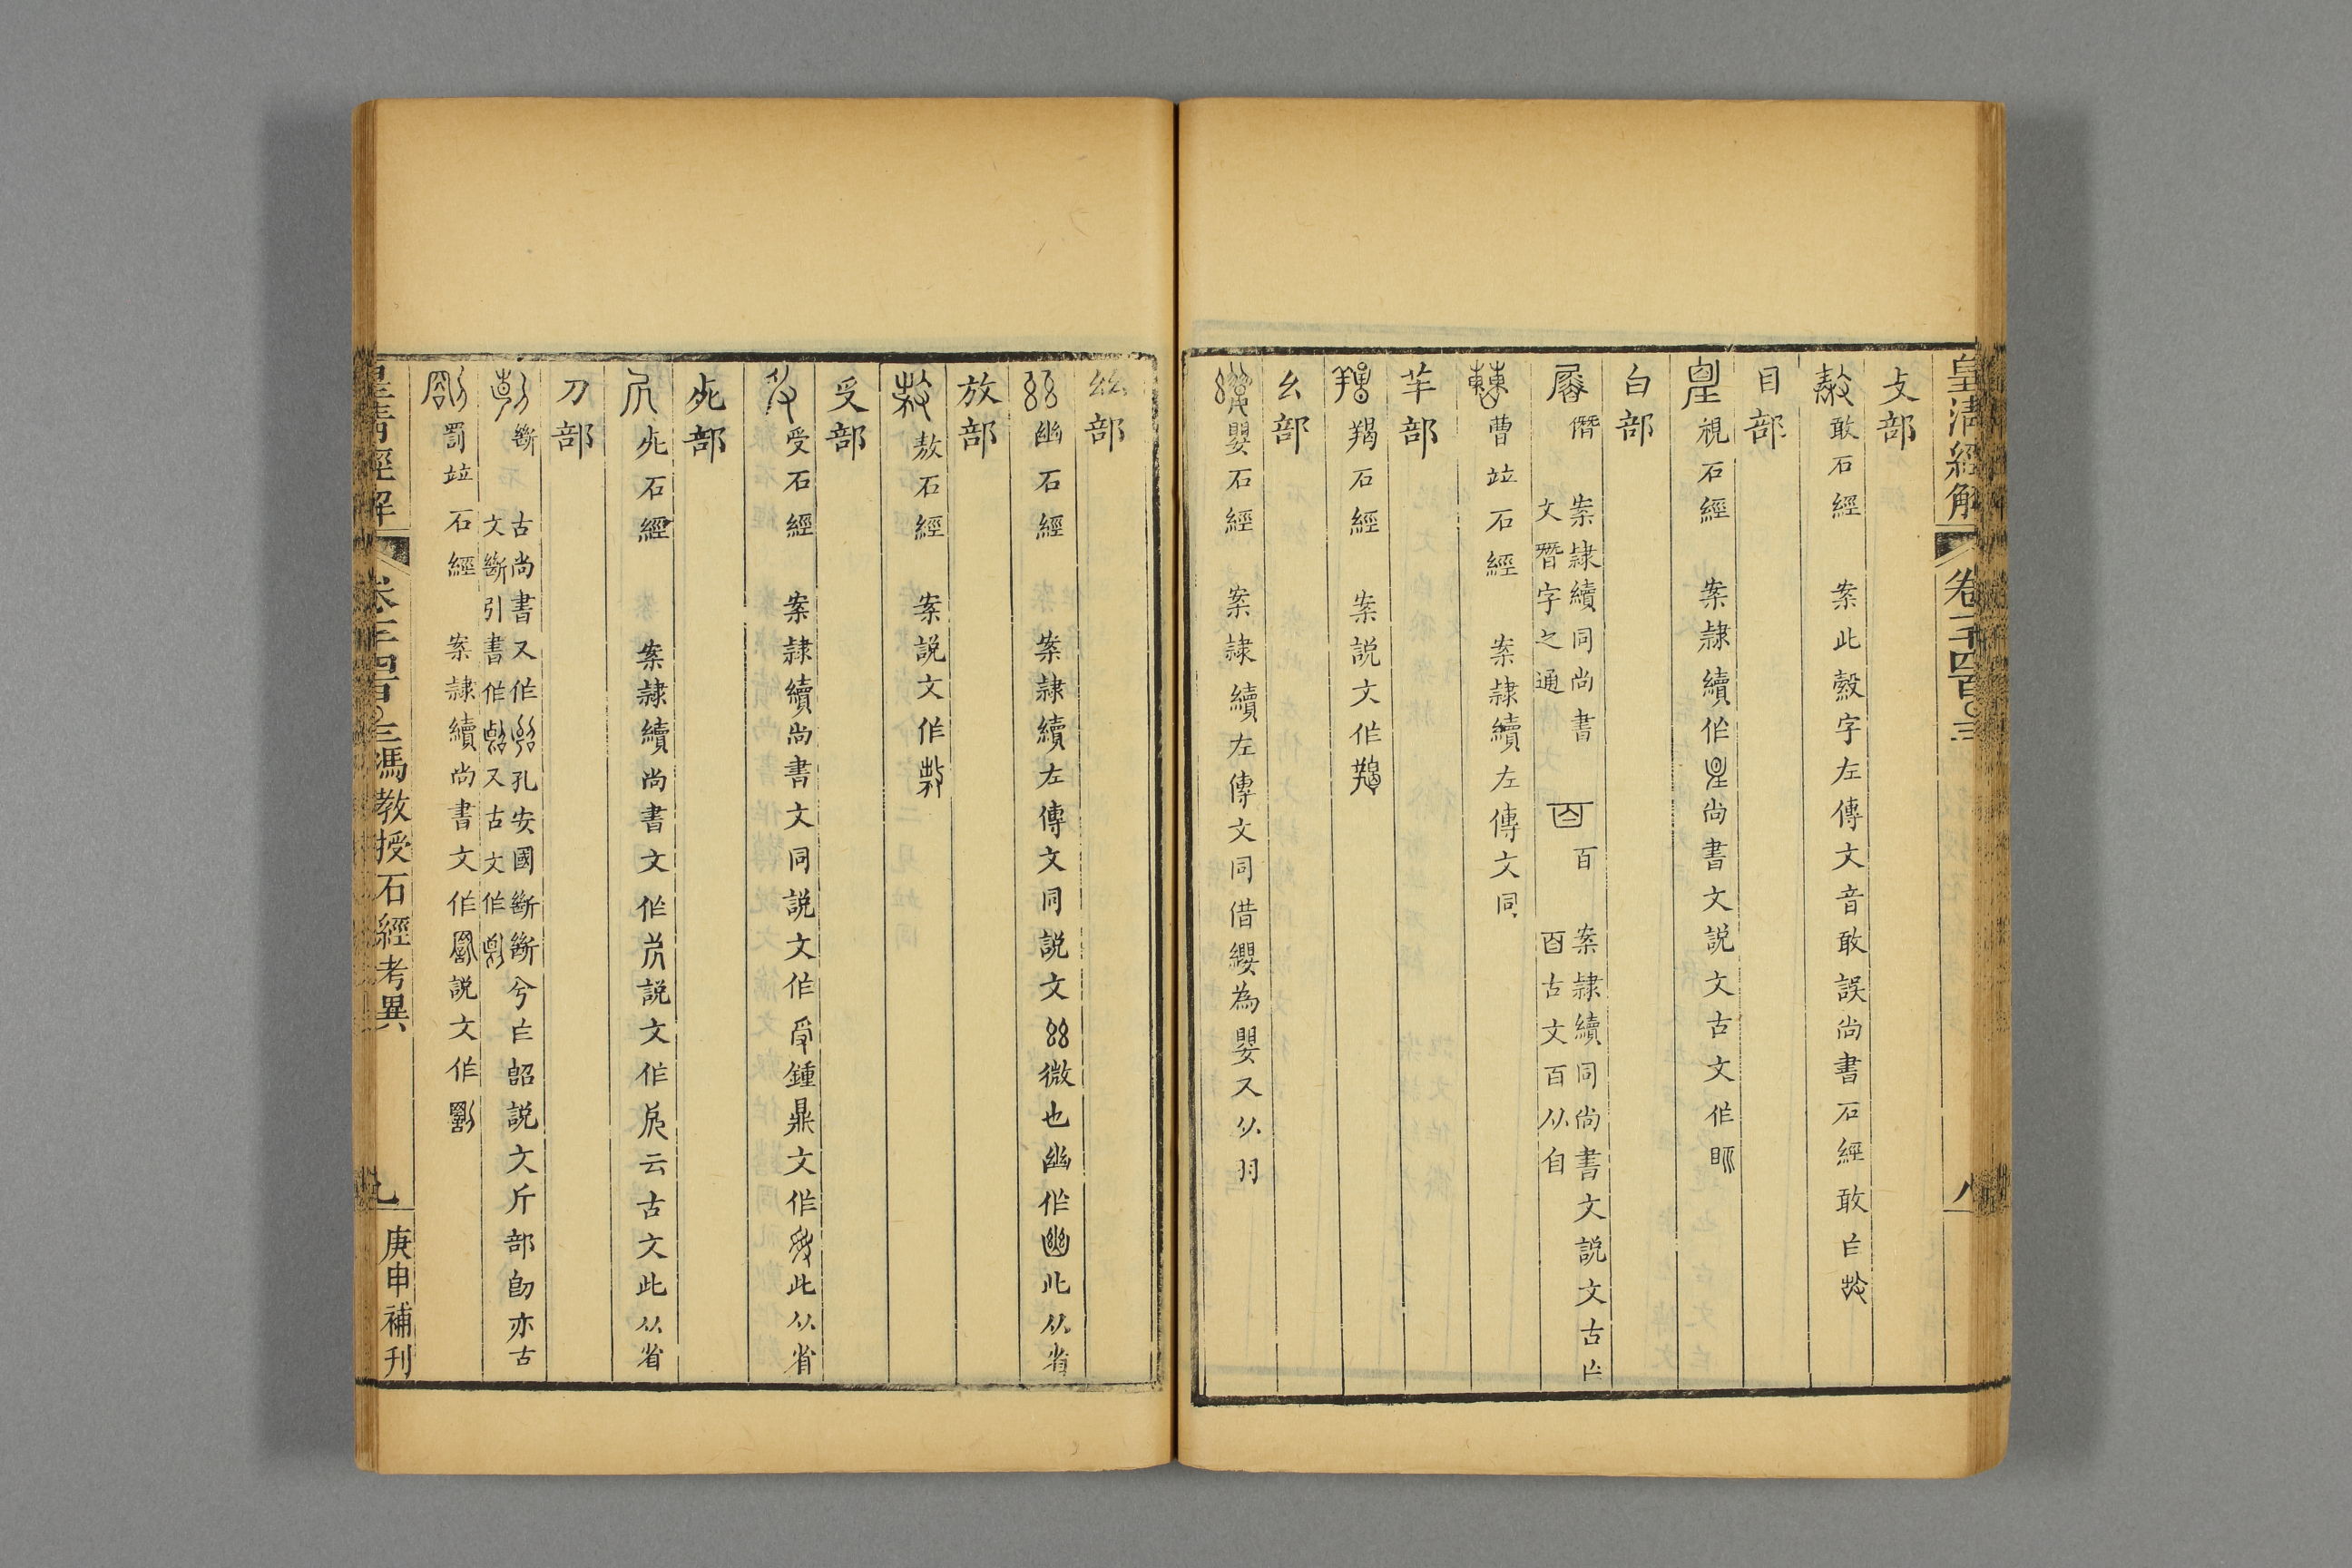 皇清經解 卷一千四百三 八
攴部
敢石經 案此㱿字左傳文音敢誤尚書石經敢㠯
目部
視石經 案隷續作尚書文説文古文作眎
白部
僭 案隷續同尚書文朁字之通 百 案隷續同尚書文説文古㠯𦣻古文百从自
曹竝石經 案隷續左傳文同
羊部
羯石經 案説文作羯
幺部
嬰石經 案隷續左傳文同借纓為嬰又从羽
𢆶部
幽石經 案隷續左傳文同説文𢆶微也幽作幽此从省
放部
敖石經 案説文作敖
𠬪部
受石經 案隷續尚書文同説文作受鍾鼎文作此从省
死部
死石經 案隷續尚書文作説文作云古文此从省
刀部
斷 古尚書又作孔安國斷斷兮㠯㔃説文斤部㔃亦古文斷引書作又古文作
罰竝石經 案隷續尚書文作説文作罰
皇清經解 卷一千四百三馮教授石經考異 九 庚申補刊